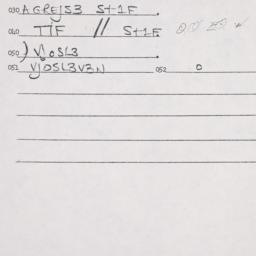 030 AGREJS3 S+1F
040 TTF // S+1F
050 ) VJOSL3
052 VJOSL3V3N 052 0